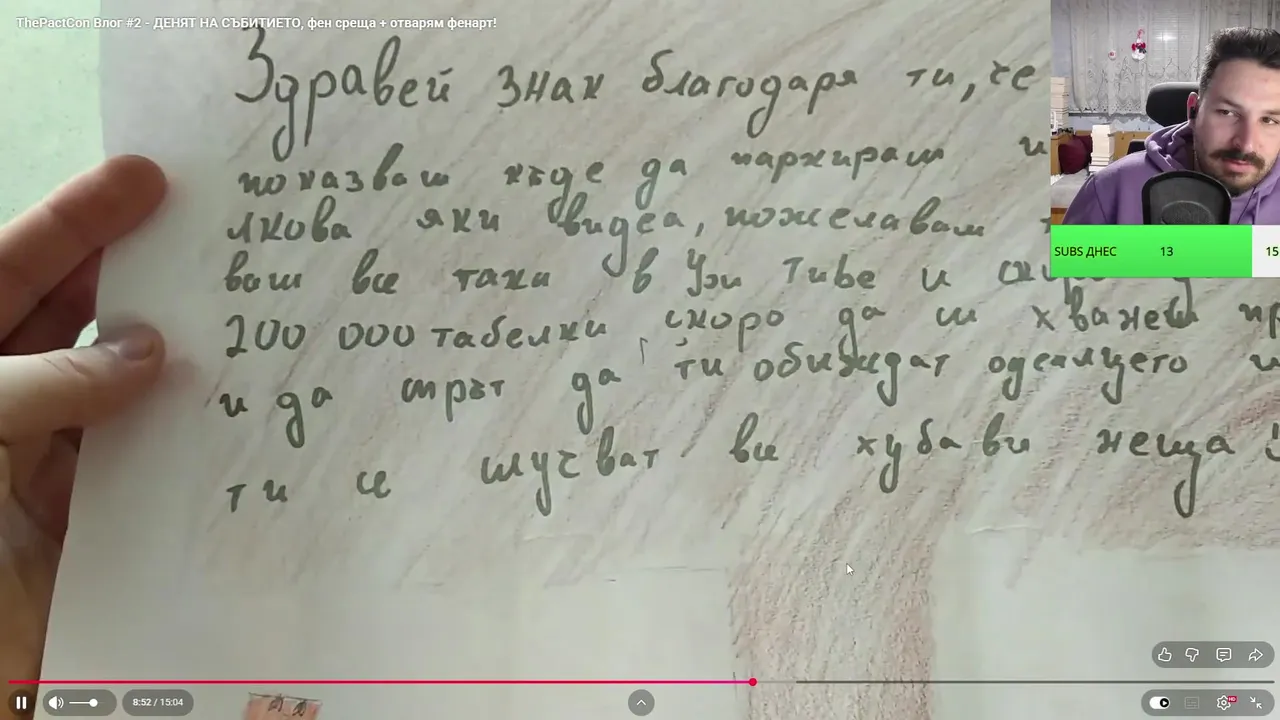 ThePactCon Влог #2 - ДЕНЯТ НА СЪБИТИЕТО, фен среща + отварям фенарт!
Здравей знак благодаря ти, че
показваш къде да паркираш и
яки видеа, пожелавам
ваш все таки в Уаи Tube и
200 000 табелки скоро да ги хванеш
и да спрът да ти обиждат одеялцето и
ти се случват все хубави неща
SUBS ДНЕС 13 15
8:52 / 15:04
HD